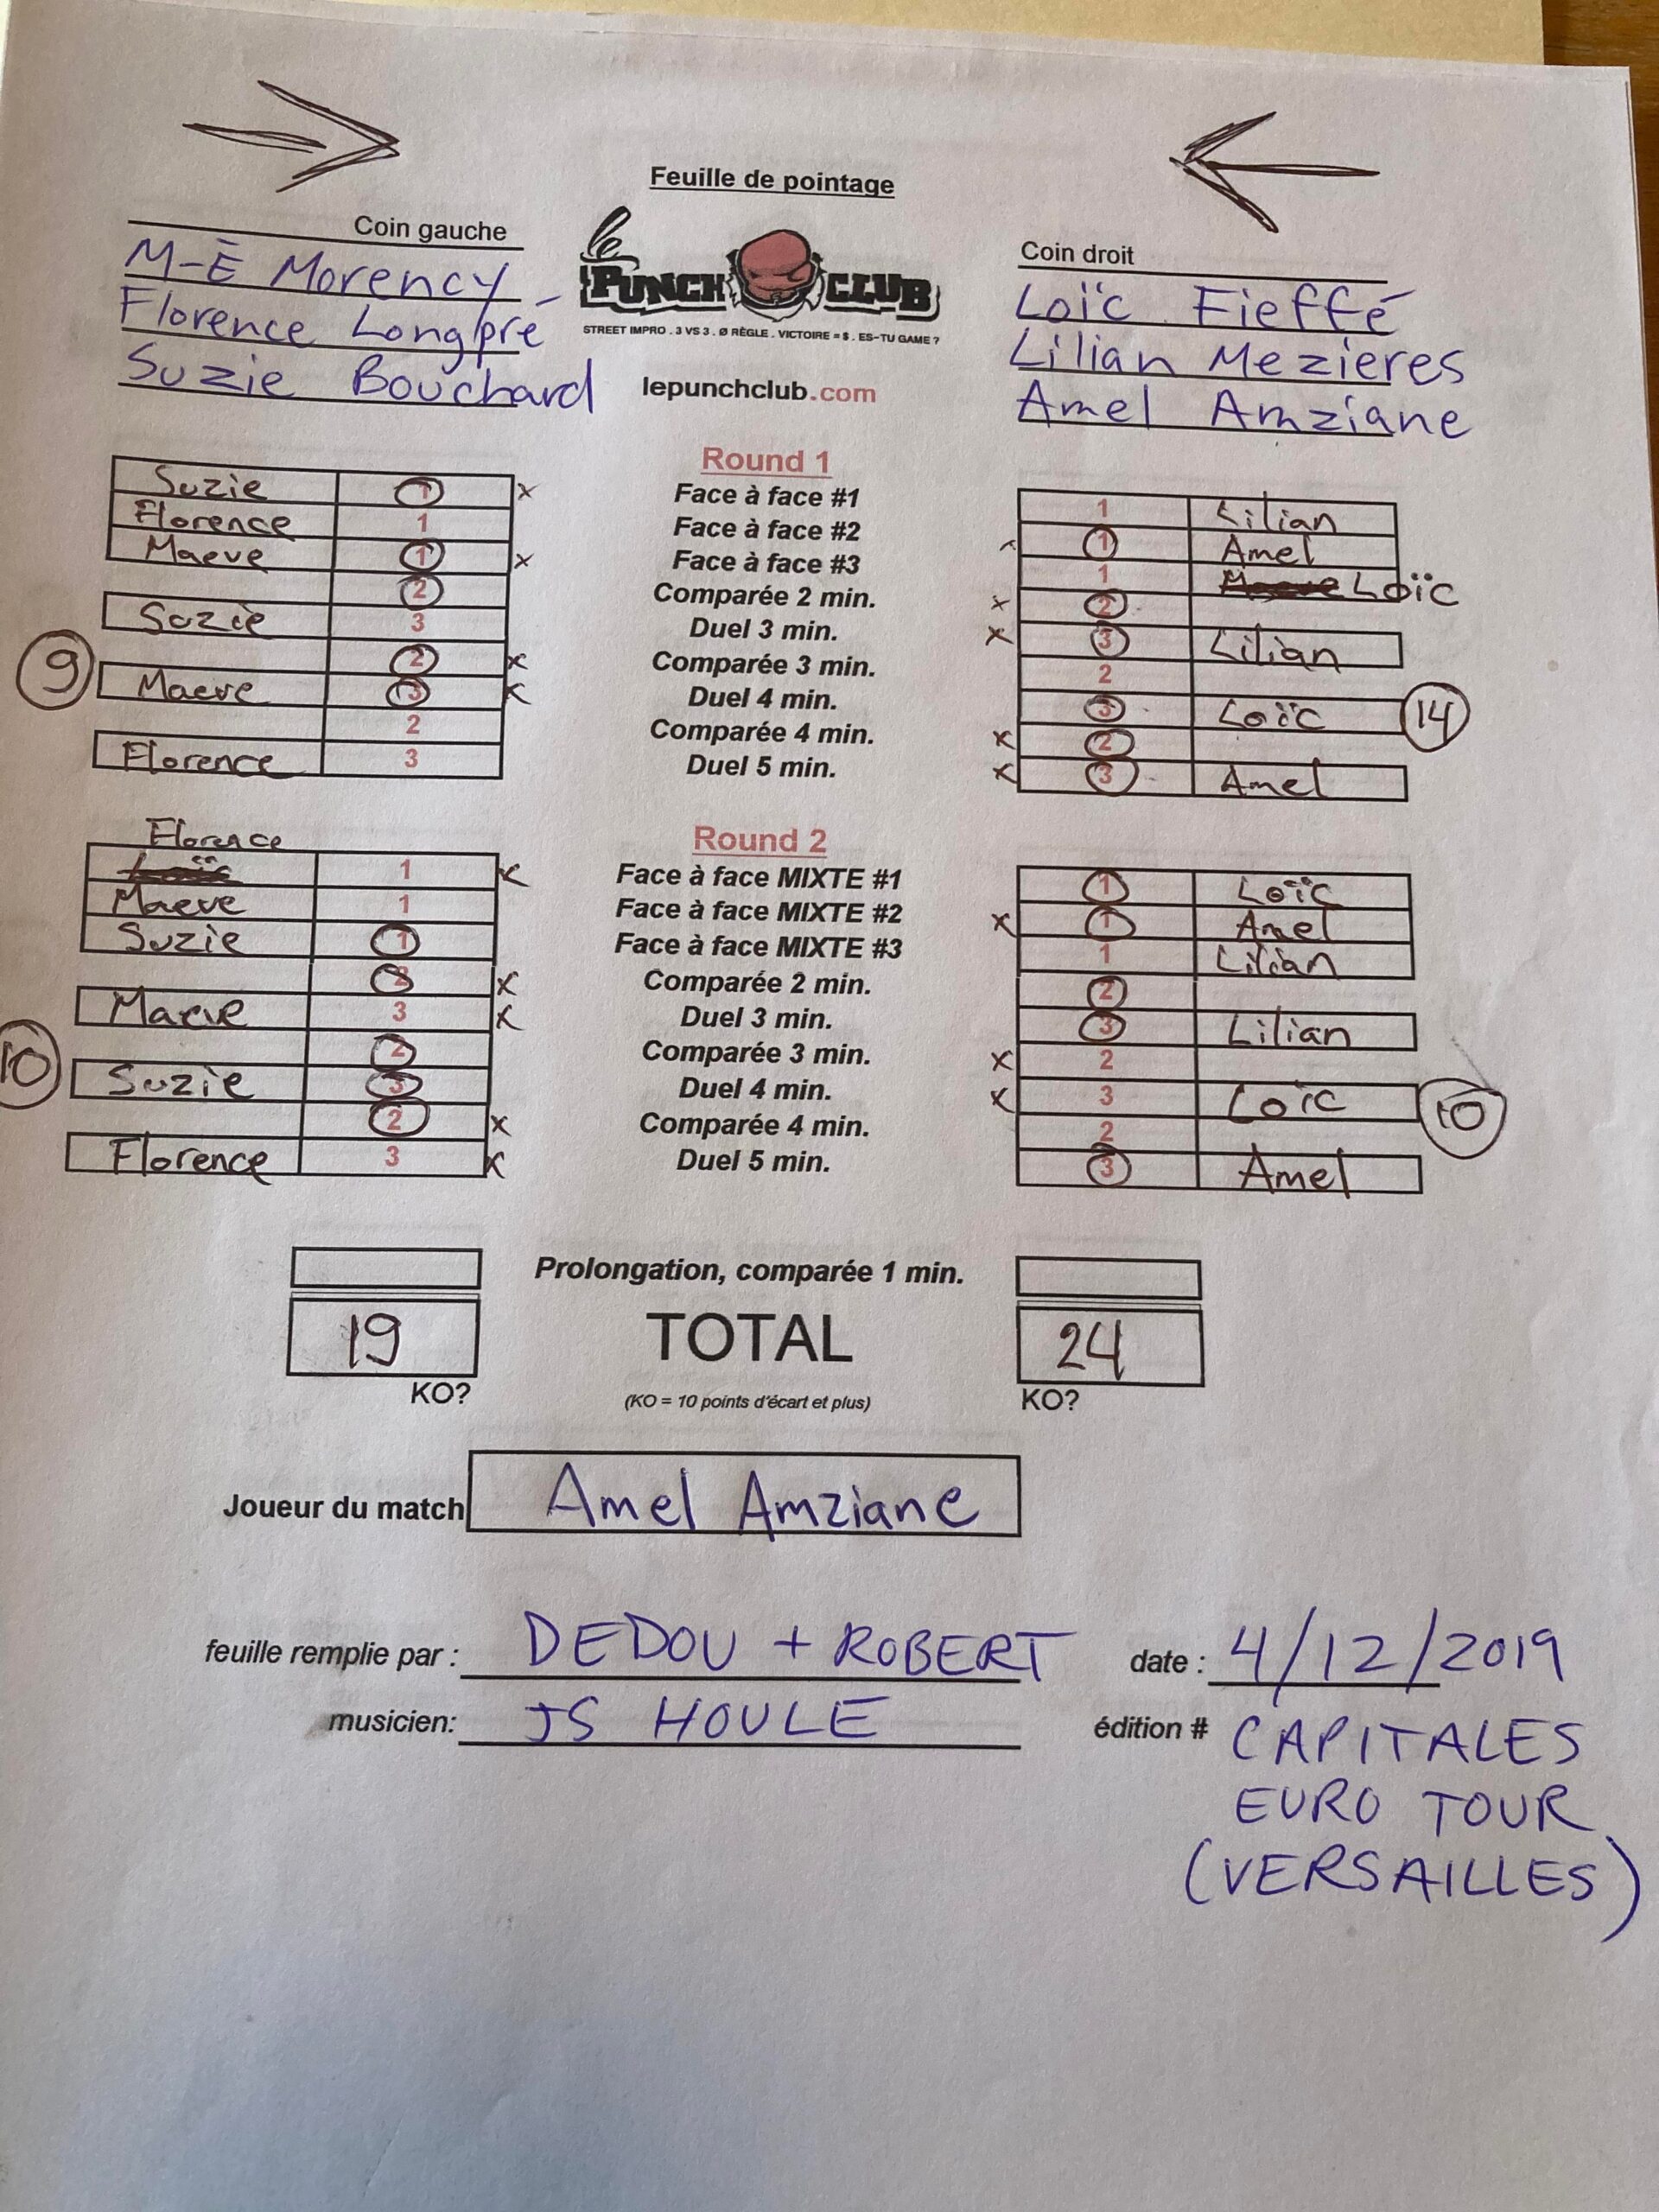 Feuille de pointage
Coin gauche
M-È Morency
Florence Longpré
Suzie Bouchard
le PUNCH CLUB
STREET IMPRO . 3 VS 3 . Ø RÈGLE . VICTOIRE = $ . ES-TU GAME ?
lepunchclub.com
Coin droit
Loïc Fieffé
Lilian Mezieres
Amel Amziane
Round 1
Suzie 1 x Face à face #1 1 Lilian
Florence 1 Face à face #2 x 1 Amel
Maeve 1 x Face à face #3 1 Loïc
2 Comparée 2 min. x 2
Suzie 3 Duel 3 min. x 3 Lilian
2 x Comparée 3 min. 2
9 Maeve 3 x Duel 4 min. 3 Loïc 14
2 Comparée 4 min. x 2
Florence 3 Duel 5 min. x 3 Amel
Round 2
Florence
1 x Face à face MIXTE #1 1 Loïc
Maeve 1 Face à face MIXTE #2 x 1 Amel
Suzie 1 Face à face MIXTE #3 1 Lilian
2 x Comparée 2 min. 2
Maeve 3 x Duel 3 min. 3 Lilian
2 Comparée 3 min. x 2
10 Suzie 3 Duel 4 min. x 3 Loïc 10
2 x Comparée 4 min. 2
Florence 3 x Duel 5 min. 3 Amel
Prolongation, comparée 1 min.
19 TOTAL 24
KO? (KO = 10 points d'écart et plus) KO?
Joueur du match Amel Amziane
feuille remplie par : DEDOU + ROBERT date : 4/12/2019
musicien: JS HOULE édition # CAPITALES
EURO TOUR
(VERSAILLES)